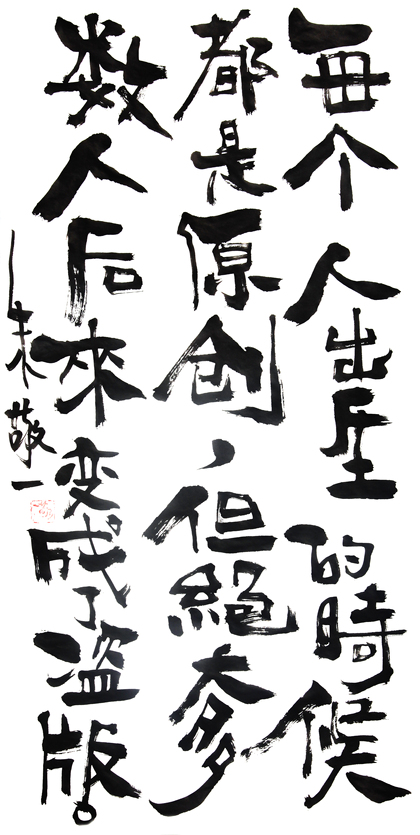 每个人出生的時候
都是原创，但絕大多
数人后來变成了盗版。
朱敬一